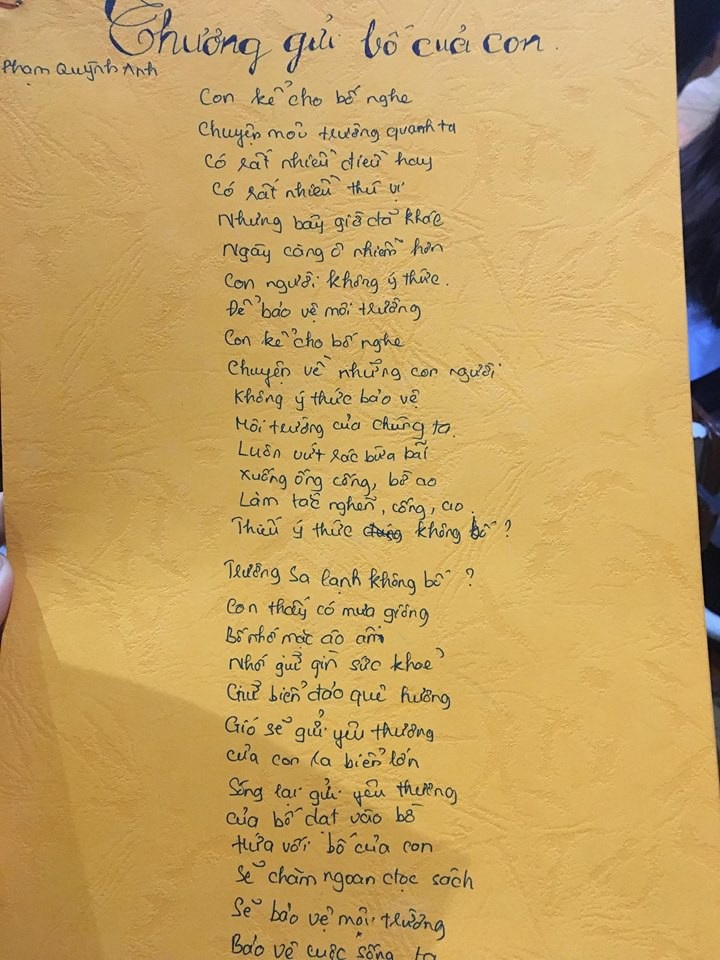 Thương gửi bố của con.
Phạm Quỳnh Anh
Con kể cho bố nghe
Chuyện môi trường quanh ta
Có rất nhiều điều hay
Có rất nhiều thú vị
Nhưng bây giờ đã khác
Ngày càng ô nhiễm hơn
Con người không ý thức.
Để bảo vệ môi trường
Con kể cho bố nghe
Chuyện về những con người
Không ý thức bảo vệ
Môi trường của chúng ta.
Luôn vứt rác bừa bãi
Xuống ống cống, bờ ao
Làm tắc nghẽn, cống, ao.
Thiếu ý thức không bố ?
Trường Sa lạnh không bố ?
Con thấy có mưa giông
Bố nhớ mặc áo ấm
Nhớ giữ gìn sức khoẻ
Giữ biển đảo quê hương
Gió sẽ gửi yêu thương
của con ra biển lớn
Sóng lại gửi yêu thương
của bố dạt vào bờ
hứa với bố của con
Sẽ chăm ngoan đọc sách
Sẽ bảo vệ môi trường
Bảo vệ cuộc sống ta